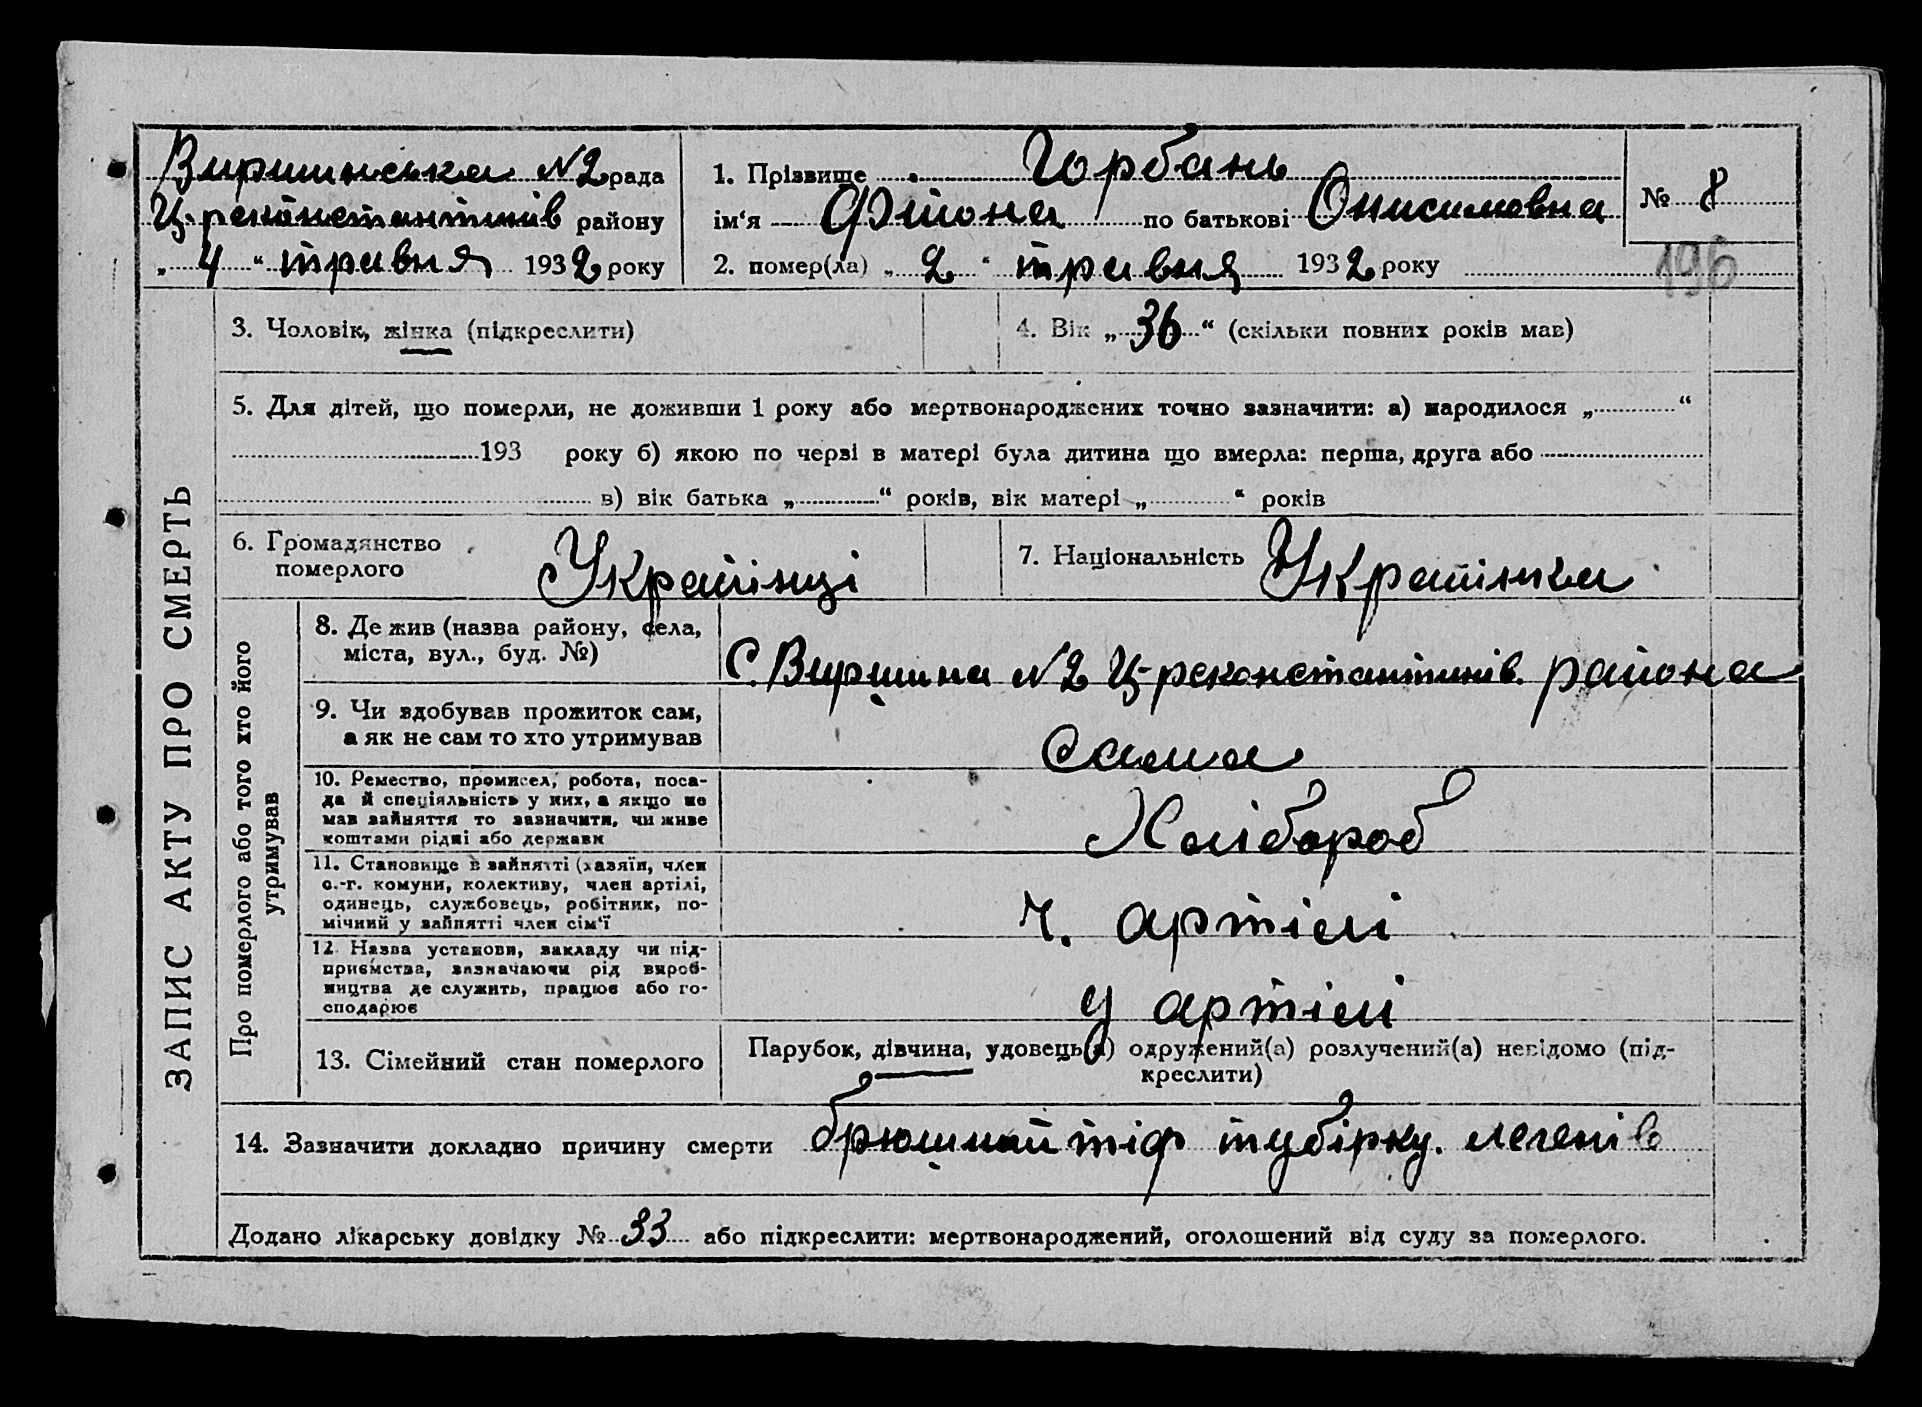 Виршинська №2 рада
Ц-реконстантинів району
„ 4 “ травня 1932 року
1. Прізвище Горбань
ім‘я Фійона по батькові Онисимовна
2. помер(ла) „ 2 “ травня 1932 року
№ 8
196
3. Чоловік, жінка (підкреслити)
4. Вік „ 36 “ (скільки повних років мав)
5. Для дітей, що померли, не доживши 1 року або мертвонароджених точно зазначити: а) народилося „ “
193 року б) якою по черзі в матері була дитина що вмерла: перша, друга або
в) вік батька „ “ років, вік матері „ “ років
6. Громадянство
померлого
Українці
7. Національність Українка
ЗАПИС АКТУ ПРО СМЕРТЬ
Про померлого або того хто його
утримував
8. Де жив (назва району, села,
міста, вул., буд. №)
С. Виршина №2 Ц-реконстантинів. района
9. Чи здобував прожиток сам,
а як не сам то хто утримував
Сама
10. Ремество, промисел, робота, поса-
да й спеціяльність у них, а якщо не
мав зайняття то зазначити, чи живе
коштами рідні або держави
Хлібороб
11. Становище в зайнятті (хазяїн, член
с.-г. комуни, колективу, член артілі,
одинець, службовець, робітник, по-
мічний у зайнятті член сім‘ї
ч. артілі
12. Назва установи, закладу чи під-
приємства, зазначаючи рід вироб-
ництва де служить, працює або го-
сподарює
у артілі
13. Сімейний стан померлого
Парубок, дівчина, удовець(а) одружений(а) розлучений(а) невідомо (під-
креслити)
14. Зазначити докладно причину смерти брюшний тіф тубірку. легенів
Додано лікарську довідку № 33 або підкреслити: мертвонароджений, оголошений від суду за померлого.